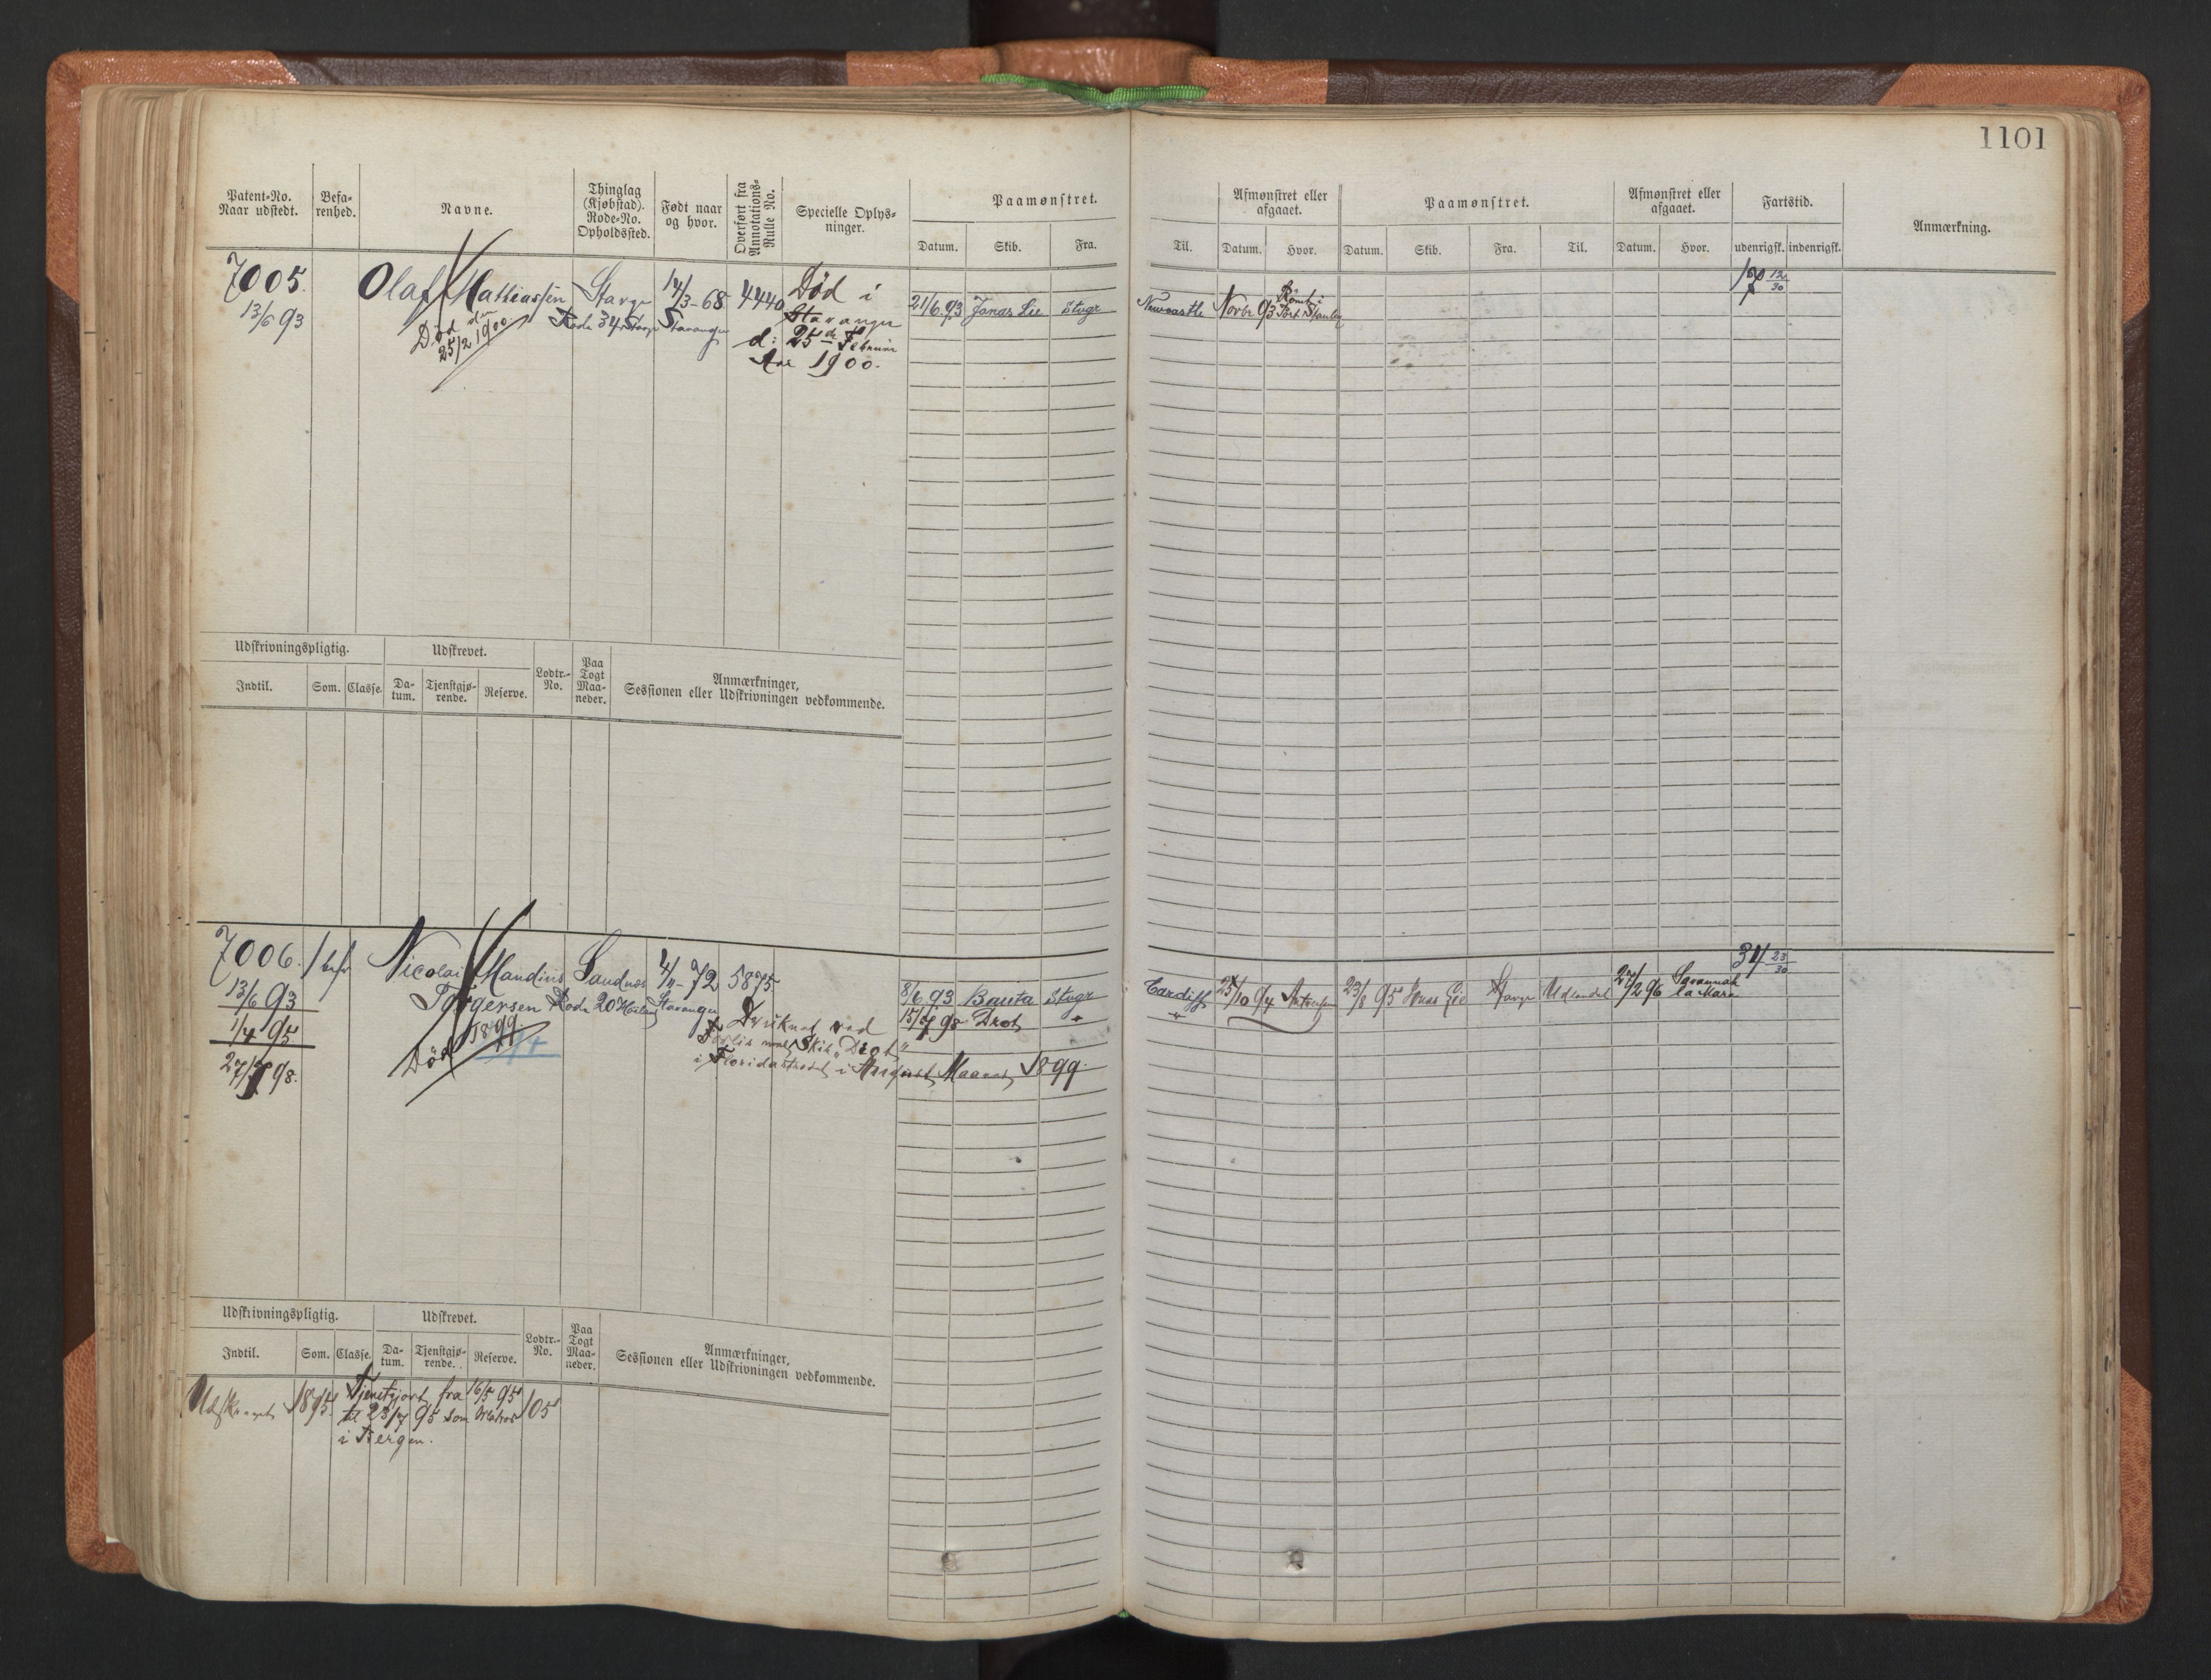 1101
Patent-No. Naar udstedt. Befa-renhed. Navne. Thinglag (Kjøbstad). Rode-No. Opholdssted. Født naar og hvor. Overført fra Annotations-Rulle No. Specielle Oplys-ninger. Paamønstret. Afmønstret eller afgaaet. Paamønstret. Afmønstret eller afgaaet. Fartstid. Anmærkning.
Datum. Skib. Fra. Til. Datum. Hvor. Datum. Skib. Fra. Til. Datum. Hvor. udenrigsk. indenrigsk.
7005. Olaf Mathiassen Stavgr 14/3-68 4440 Død i
13/6 93 Rode 34 Stavanger Stavanger
Død den d: 25de Februar
25/2 1900 Aar 1900.
21/6 93 Jonas Lie Stvgr Newcastle Novbr 93 Rømt i Port Stanley
12/30
Udskrivningspligtig. Udskrevet. Lodtr.-No. Paa Togt Maa-neder. Anmærkninger, Sessionen eller Udskrivningen vedkommende.
Indtil. Som. Classe. Da-tum. Tjenstgjø-rende. Reserve.
7006. 1 bef Nicolai Mandius Sandnes 4/11-72 5875
13/6 93 Torgersen Rode 20 Stavanger
1/4 95 1899
27/7 98. Død
Druknet ved
Forlis med Skib "Drot"
i Floridastrædet i August Maaned 1899.
8/6 93 Bauta Stvgr Cardiff 25/10 94 Antwerpen 23/8 95 Jonas Lie Stavgr Udlandet 27/2 96 Savannah la Mara
15/7 98 Drot "
31 23/30
Udskrivningspligtig. Udskrevet. Lodtr.-No. Paa Togt Maa-neder. Anmærkninger, Sessionen eller Udskrivningen vedkommende.
Indtil. Som. Classe. Da-tum. Tjenstgjø-rende. Reserve.
Udskrevet 1895. Tjenstgjort fra 16/5 95 105
til 23/7 95 som Matros
i Bergen.